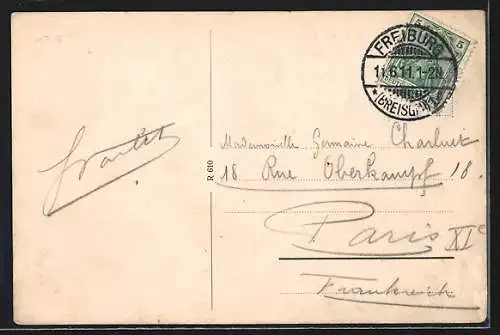 5
FREIBURG
11.6.11.1-2N.
*(BREISGAU)
Mademoiselle Germaine Charluet
18 Rue Oberkampf 18.
Paris XIe
Frankreich
R 610